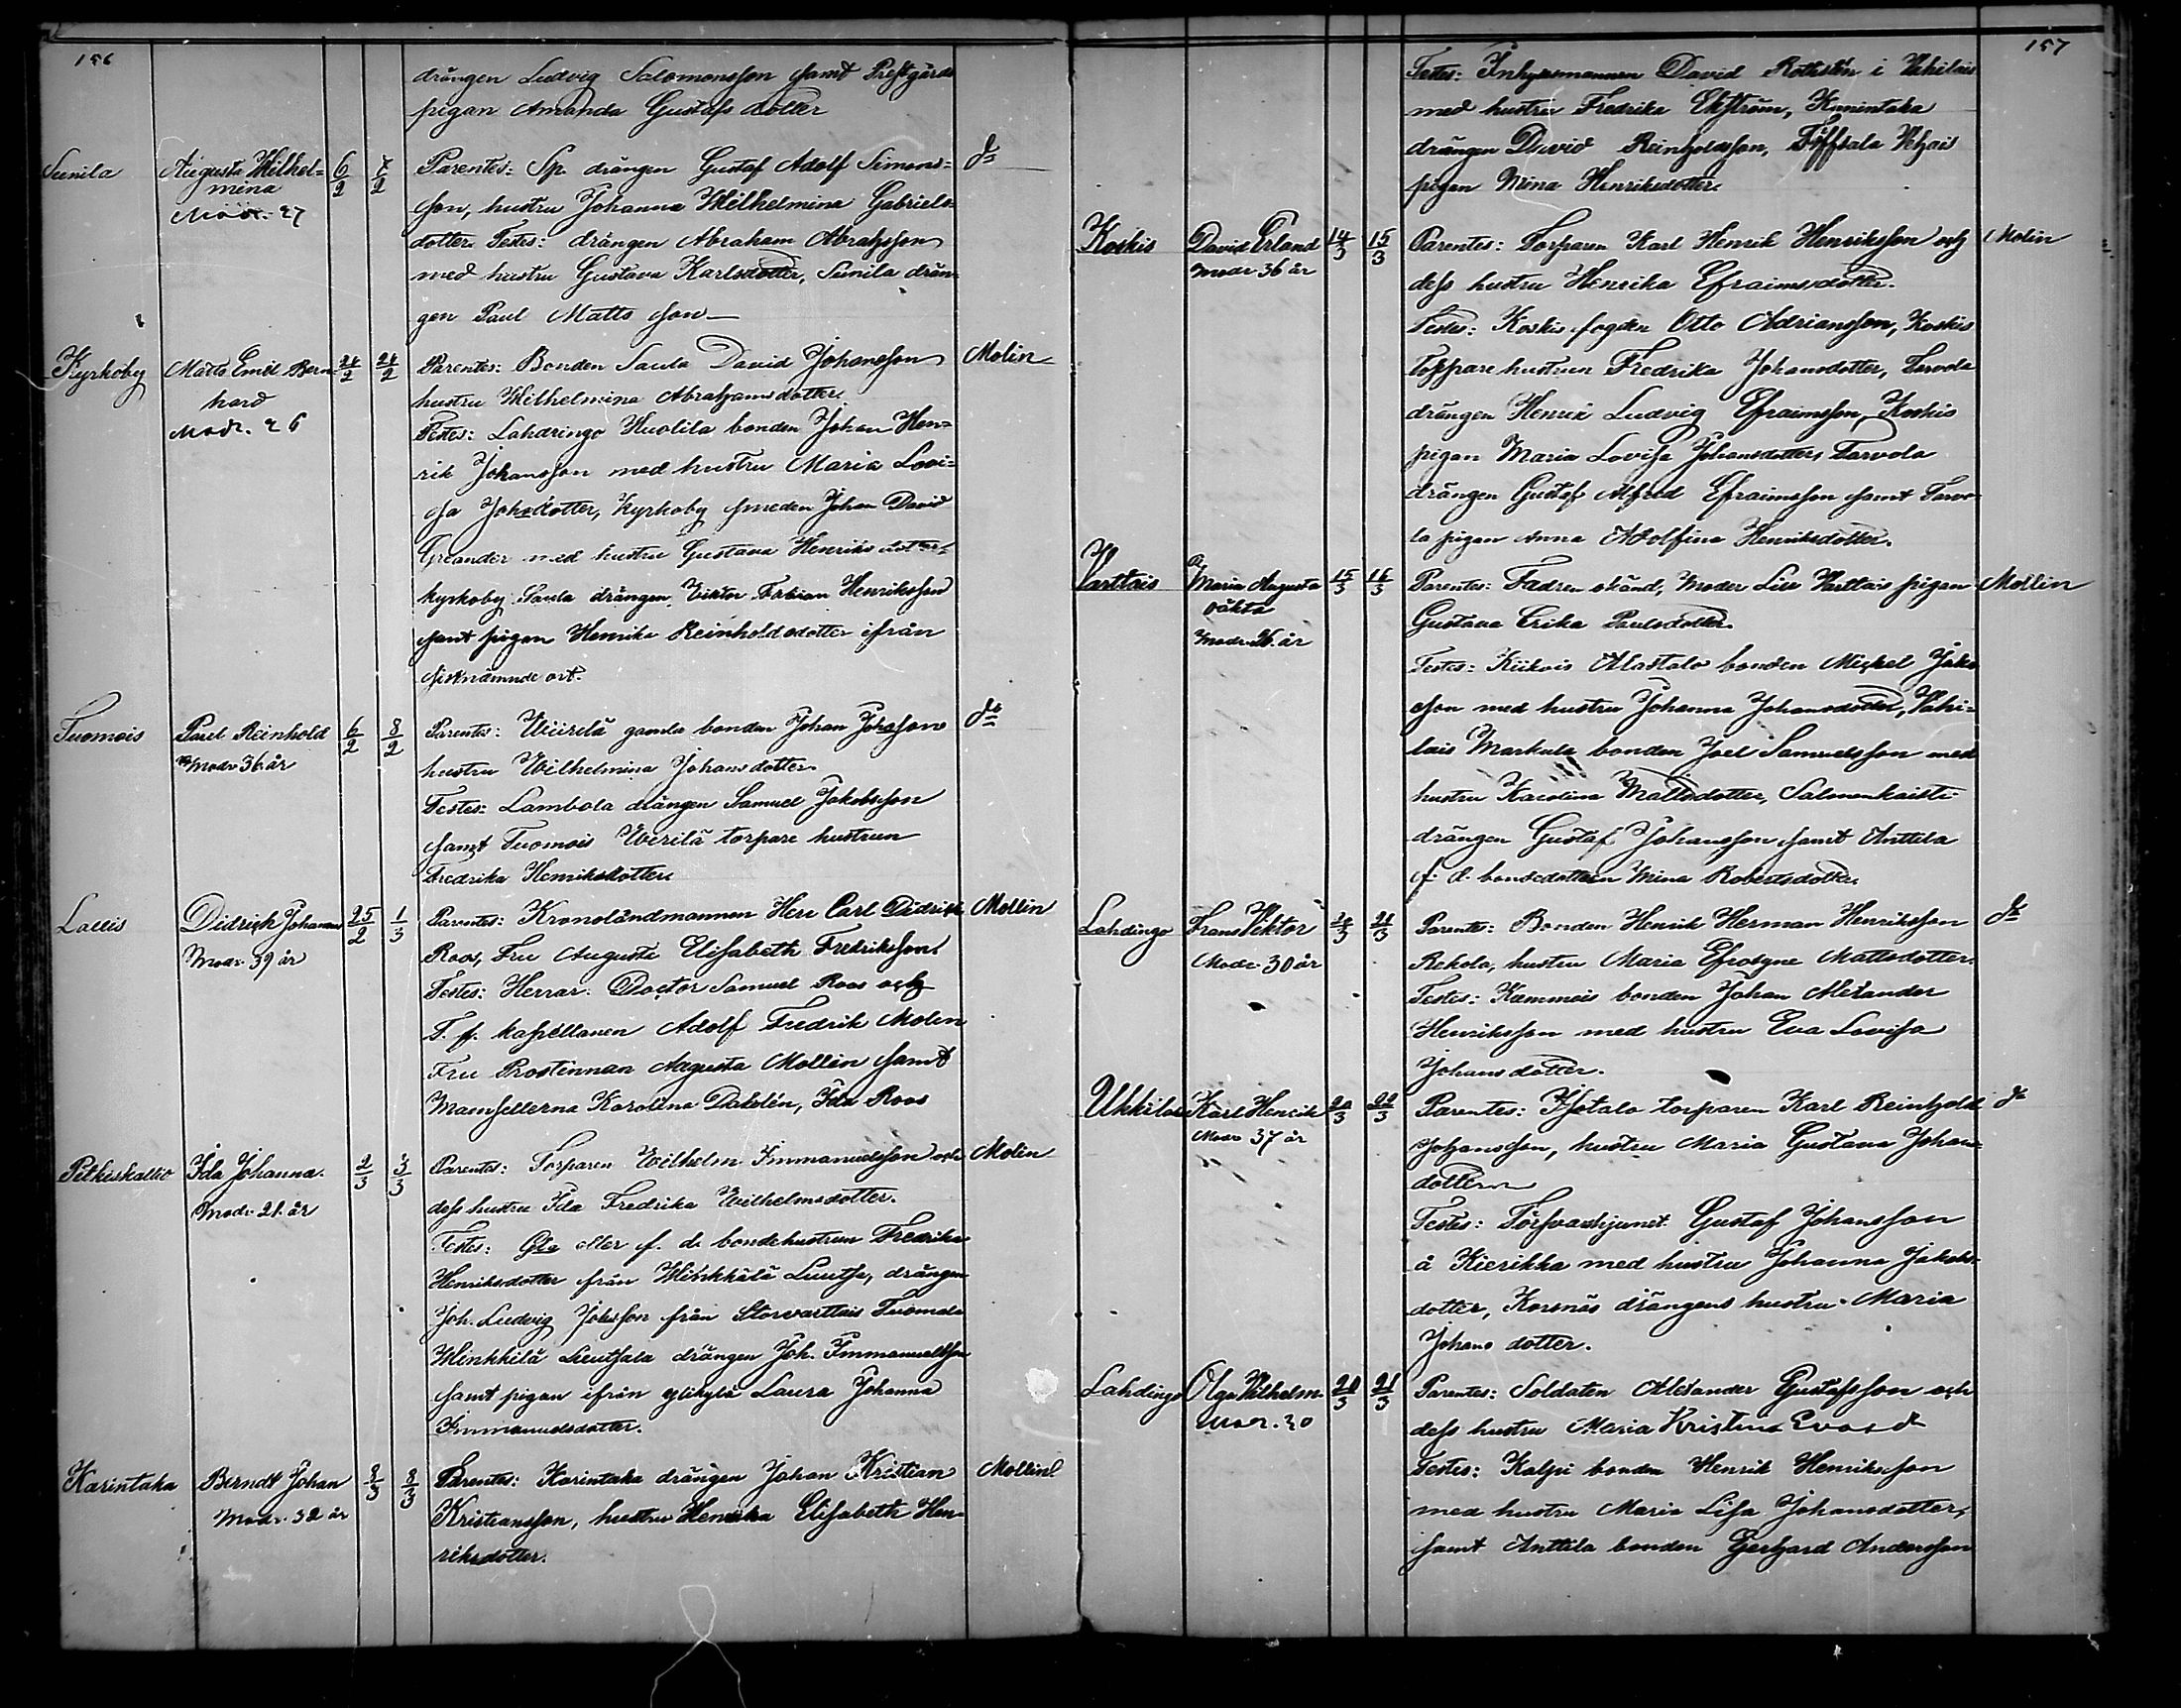 156
drängen Ludvig Salomonsson samt Prestgårds
pigan Amanda Gustafs dotter
Sunila
Augusta Wilhel=
mina
Modr. 27
6/2
7/2
Parentes: Sp. drängen Gustaf Adolf Simons=
son, hustru Johanna Wilhelmina Gabriels
dotter. Testes: drängen Abraham Abrahsson
med hustru Gustava Karlsdotter, Sunila drän
gen Paul Matts son
do
Kyrkoby
Matts Emil Bern
hard
Modr. 26
24/2
24/2
Parentes: Bonden Saula David Johansson
hustru Wilhelmina Abrahamsdotter.
Testes: Lahdringo Kuolila bonden Johan Hen=
rik Johansson med hustru Maria Lovi=
sa Johsdotter, Kyrkoby smeden Johan David
med hustru Gustava Henriks dotter
kyrkoby Saula drängen Viktor Fabian Henriksson
samt pigan Henrika Reinholdsdotter ifrån
sistnämnde ort.
Molin
Tuomois
Paul Reinhold
Modr 36 år
6/2
8/2
Parentes: gamla bonden Johan Johsson
hustru Wilhelmina Johansdotter.
Testes: Lambola drängen Samuel Jakobsson
samt Tuomois torpare hustrun
Fredrika Henriksdotter
do
Lallis
Didrich Johannes
Modr. 39 år
25/2
1/3
Parentes: Kronoländmannen Herr Carl Didrich
Roos, Fru Augusta Elisabeth Fredriksson.
Testes: Herrar. Doctor Samuel Roos och
T. f. kapellanen Adolf Fredrik Molin
Fru Prostinnan Augusta Mollin samt
Mamsellerna Karolina Dahlén, Ida Roos
Mollin
Pitkiskallio
Ida Johanna.
Modr. 21 år
2/3
3/3
Parentes: Torparen Wilhelm Immanuelsson och
dess hustru Ida Fredrika Wilhelmsdotter.
Testes: eller f. d. bondehustrun Fredrika
Henriksdotter från drängen
Joh. Ludvig Johsson från Storvarttais Tuomala
drängen Joh. Immanuelsson
samt pigan ifrån Ylikylä Laura Johanna
Immanuelsdotter.
Molin
Karintaka
Berndt Johan
Modr. 32 år
8/3
8/3
Parentes: Karintaka drängen Johan Kristian
Kristiansson, hustru Henrika Elisabeth Hen=
riksdotter.
Mollin
157
Testes: Inhysesmannen David Rothstén i
med hustru Fredrika Ekström, Karintaka
drängen David Reinholdsson,
pigan Mina Henriksdotter
Koskis
David Erland
Modr 36 år
14/3
15/3
Parentes: Torparen Karl Henrik Henriksson och
dess hustru Henrika Efraimsdotter.
Testes: Koskis fogden Otto Adriansson, Koskis
torpare hustrun Fredrika Johansdotter, Tarvola
drängen Henrik Ludvig Efraimsson, Koskis
pigan Maria Lovisa Johansdotter, Tarvola
drängen Gustaf Alfred Efraimsson samt Tarvo
la pigan Anna Adolfina Henriksdotter.
Molin
Varttais
Maria Augusta
oäkta
Modr 26 år
15/3
16/3
Parentes: Fadren okänd, Moder Lill Varttais pigan
Gustava Erika Paulsdotter.
Testes: Kiikois Alastalo bonden Mickel Jako
sson med hustru Johanna Johansdotter,
Markula bonden Joel Samuelsson med
hustru Karolina Mattsdotter,
drängen Gustaf Johansson samt Anttila
f. d. bondedottern Mina Robertsdotter
Mollin
Lahdingo
Frans Viktor
Modr 30 år
20/3
21/3
Parentes: Bonden Henrik Herman Henriksson
Rekola, hustru Maria Efrosyne Mattsdotter.
Testes: bonden Johan Alexander
Henriksson med hustru Eva Lovisa
Johansdotter.
do
Uhkilas
Karl Henrik
Modr 37 år
20/3
22/3
Parentes: torparen Karl Reinhold
Johansson, hustru Maria Gustava Johans=
dotter
Testes: Gustaf Johansson
å Kierikka med hustru Johanna Jakobs=
dotter, Korsnäs drängens hustru Maria
Johans dotter.
do
Lahdingo
Olga Wilhelm.
Modr. 30
20/3
21/3
Parentes: Soldaten Alexander Gustafsson och
dess hustru Maria Kristina
Testes: Kalpi bonden Henrik Henriksson
med hustru Maria Lisa Johansdotter,
samt Anttila bonden Gerhard Andersson